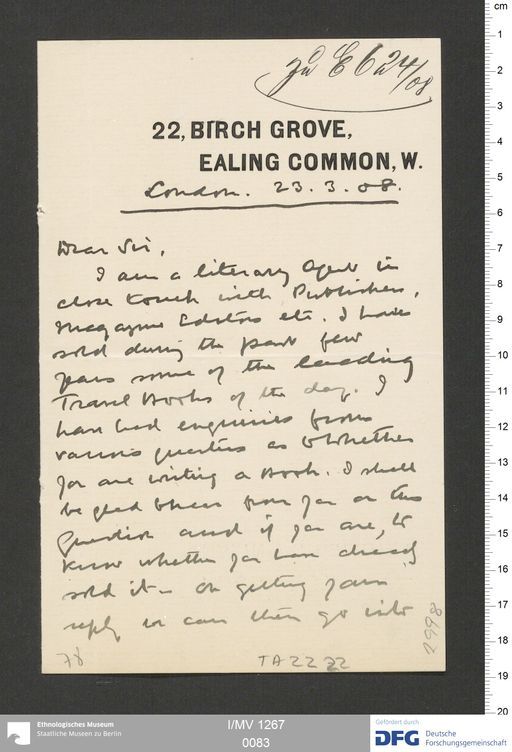 zu E 624/08
22, BIRCH GROVE,
EALING COMMON, W.
London. 23. 3. 08.
Dear Sir,
I am a literary Agent in
close touch with Publishers,
Magazine Editors etc. I have
sold during the past few
years some of the leading
Travel Books of the day. I
have had enquiries from
various quarters as to whether
you are writing a Book. I shall
be glad to hear from you on this
Question and if you are, to
know whether you have already
sold it – On getting your
reply we can then go into
2998
78
TA 22 22
cm
1
2
3
4
5
6
7
8
9
10
11
12
13
14
15
16
17
18
19
20
Ethnologisches Museum
Staatliche Museen zu Berlin
I/MV 1267
0083
Gefördert durch
DFG Deutsche
Forschungsgemeinschaft